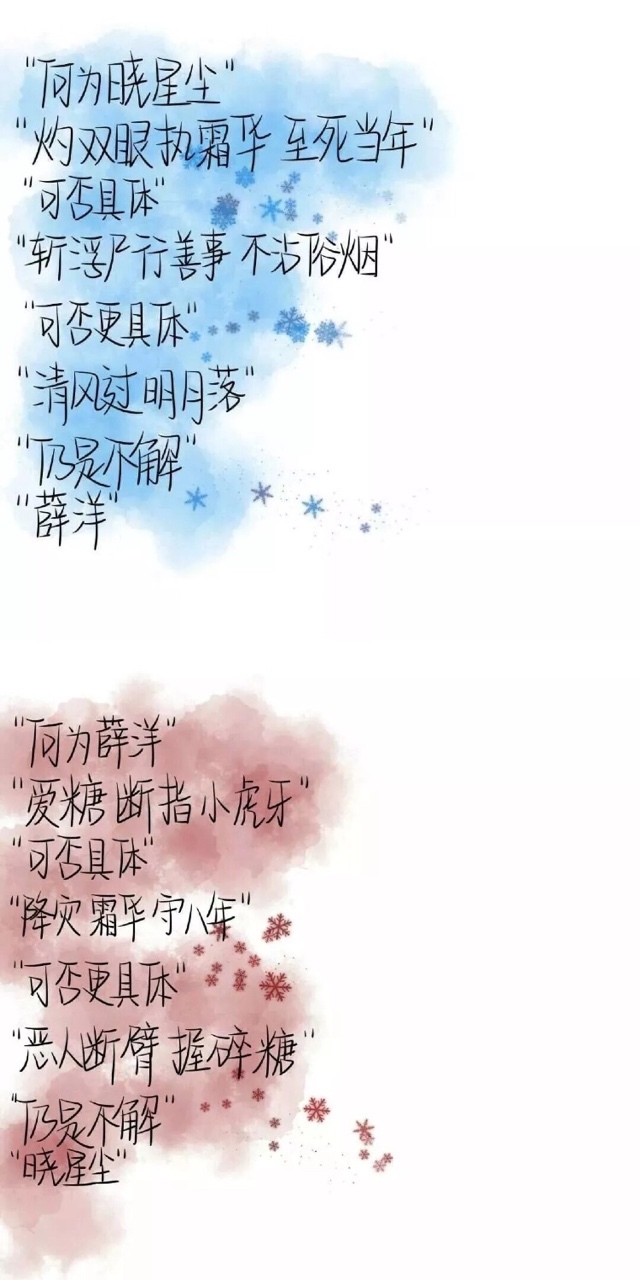 "何为晓星尘"
"灼双眼执霜华 至死当年"
"可否具体"
"斩浮尸行善事 不沾俗烟"
"可否更具体"
"清风过 明月落"
"仍是不解"
"薛洋"
"何为薛洋"
"爱糖 断指 小虎牙"
"可否具体"
"降灾 霜华 守八年"
"可否更具体"
"恶人断臂 握碎糖"
"仍是不解"
"晓星尘"